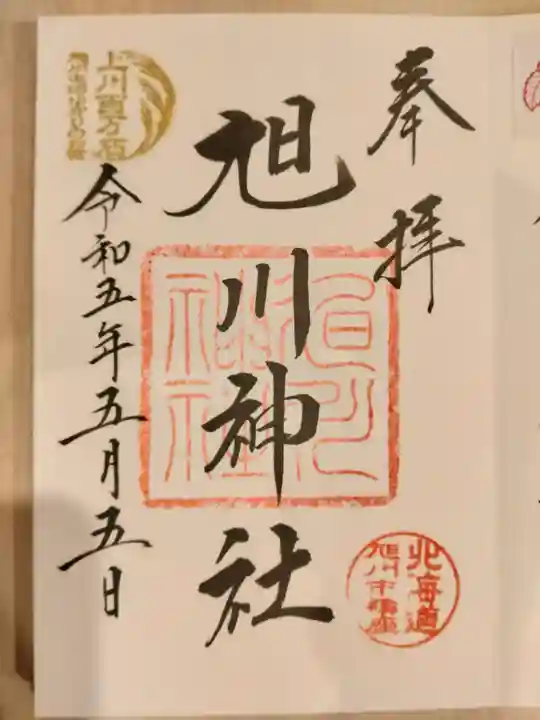 奉拝
旭川神社
旭川神社
北海道
旭川市鎮座
上川百万石
令和五年五月五日